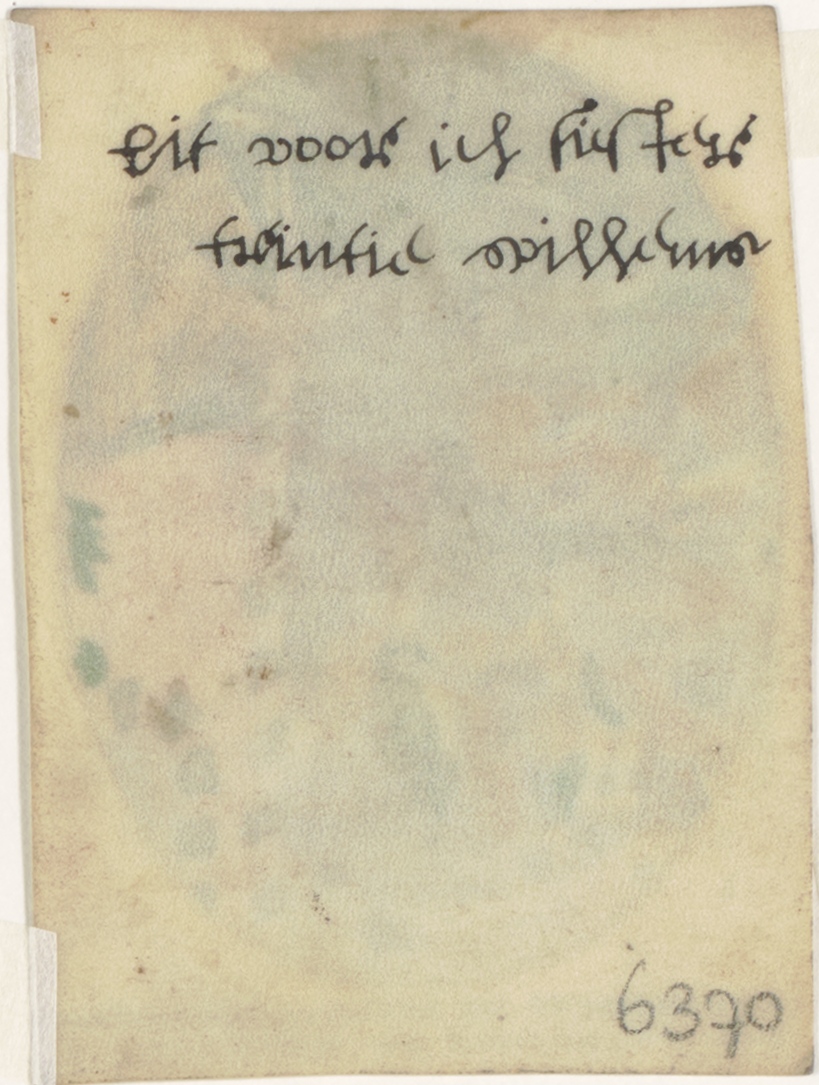 bit voor ich suster
trintie willhems
6370